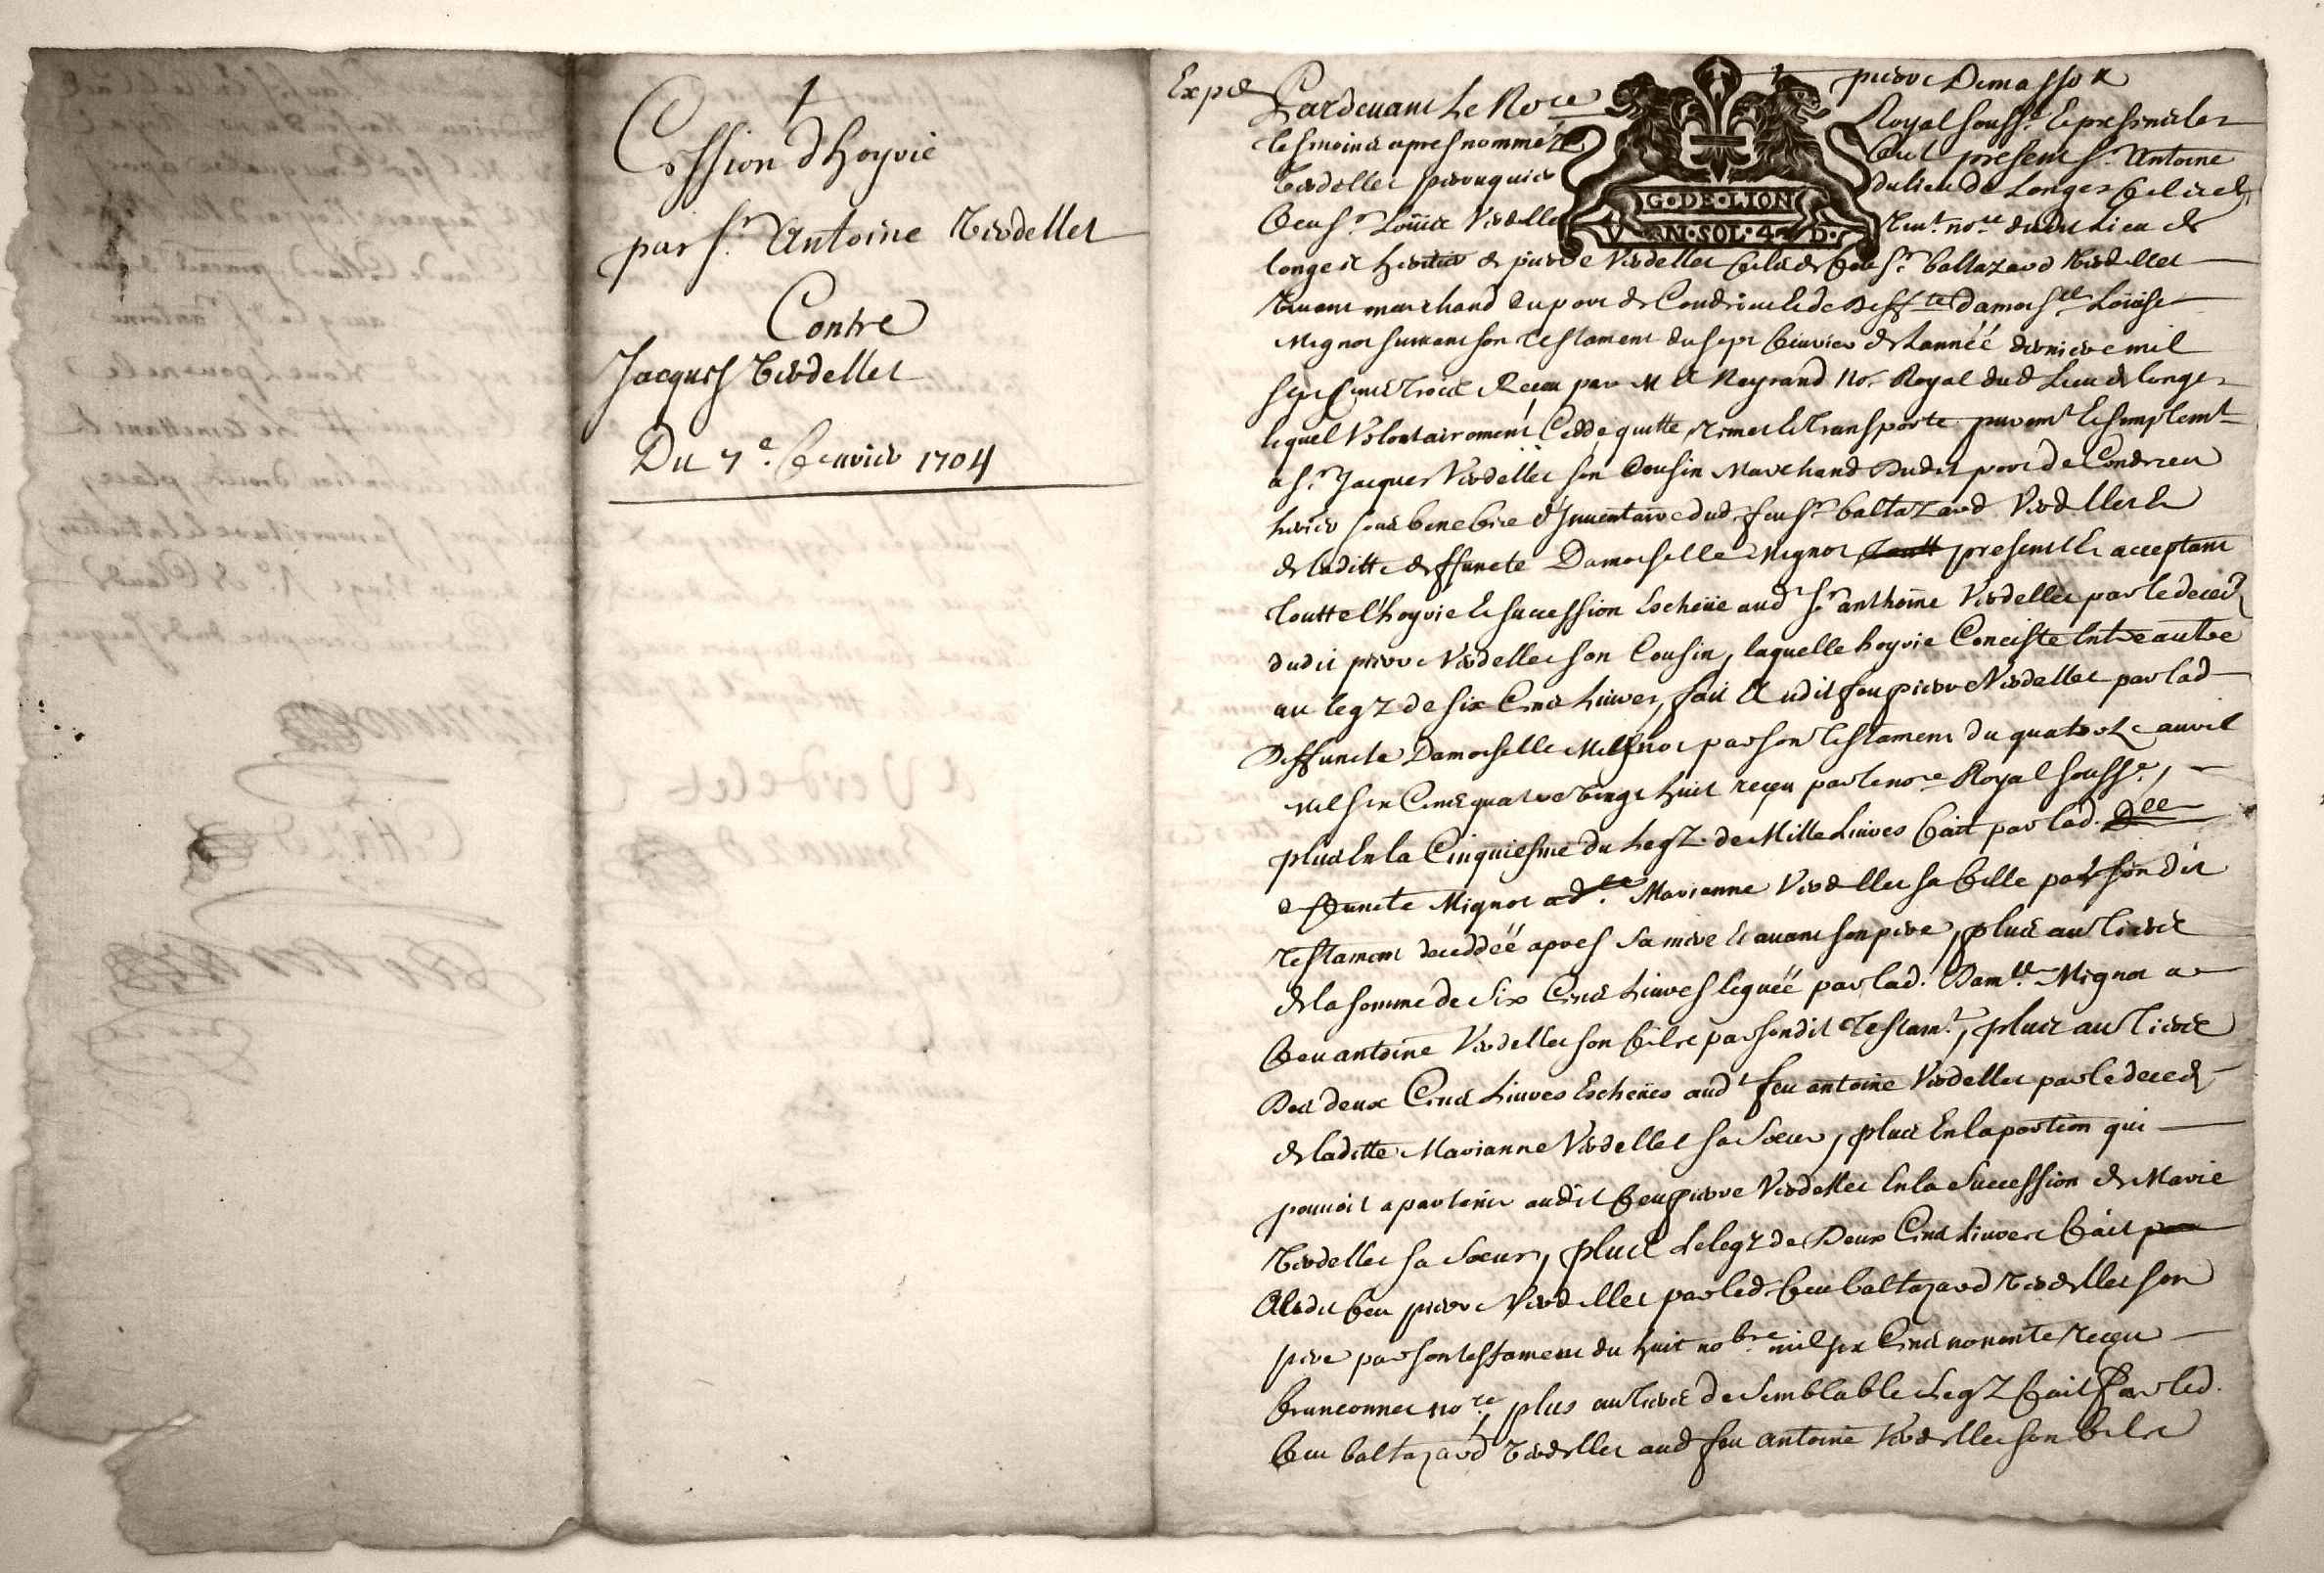 Cession d'hoyrie
par Sr. Antoine Verdellet
Contre
Jacques Verdellet
Du 7e. feuvrier 1704
Expé
Pardeuant Le Nore
pierre Demasso
Royal soussé. Et presents les
tesmoins apres nommés
feut present Sr. Antoine
Verdellet perruquier
du lieu de Longes fils de
G·DE·LION
VN·SOL·4·D·
feu Sr. Loüis Verdellet
nore. dudit Lieu de
longes heritier de pierre Verdellet fils de feu Sr. baltazard Verdellet
viuant marchand du port de Condrieu et de Deffte damoislle Loüise
Mignot suivant son testament du sept feuvrier de Lannéé derniere mil
sept Cents trois Receu par Me Reyrand No. Royal dud Lieu de longes
lequel Volontairement Cedde quitte remet et transporte puremt et simplemt
a Sr. Jacques Verdellet son Cousin Marchand Dudit port de Condrieu
herier sous benefice d'Inuentaire dud. feu Sr. baltazard Verdellet et
de laditte deffuncte Damoiselle Mignot presents et acceptant
toutte l'hoyrie et succession Escheüe audt Sr anthoine Verdellet par le deced
dudit pierre Verdellet son Cousin, laquelle hoyrie Conciste Entre autre
au legz de six Cents Liures, fait Audit feu pierre Verdellet par lad
Deffuncte Damoiselle Mignot par son testament du quatorze auril
mil six Cents quatre vingt huit reçeu par le nore Royal soussé,
plus En la Cinquiesme du Legz de Mille Liures fait par lad.
deffuncte Mignot a de. Marianne Verdellet sa fille par son dit
testament deceddéé apres sa mere et auant son pere, plus au tiers
de la somme de Six Cents Liures leguéé par lad. Damlle Mignot a
feu antoine Verdellet son fils par sondit testamt, plus au tiers
Des deux Cents Liures Escheües audt feu antoine Verdellet par le deced
de laditte Marianne Verdellet sa Soeur, plus En la portion qui
pouuoit apartenir audit feu pierre Verdellet En la Succession de Marie
Verdellet sa Soeur, plus Le legz de Deux Cents Liures fait
Audit feu pierre Verdellet par led feu baltazard Verdellet son
pere par son testament du huit nobre mil six Cents nonante reçeu
nore, plus au tiers de Semblable Legz fait Par led.
feu baltazard Verdellet aud feu antoine Verdellet son fils